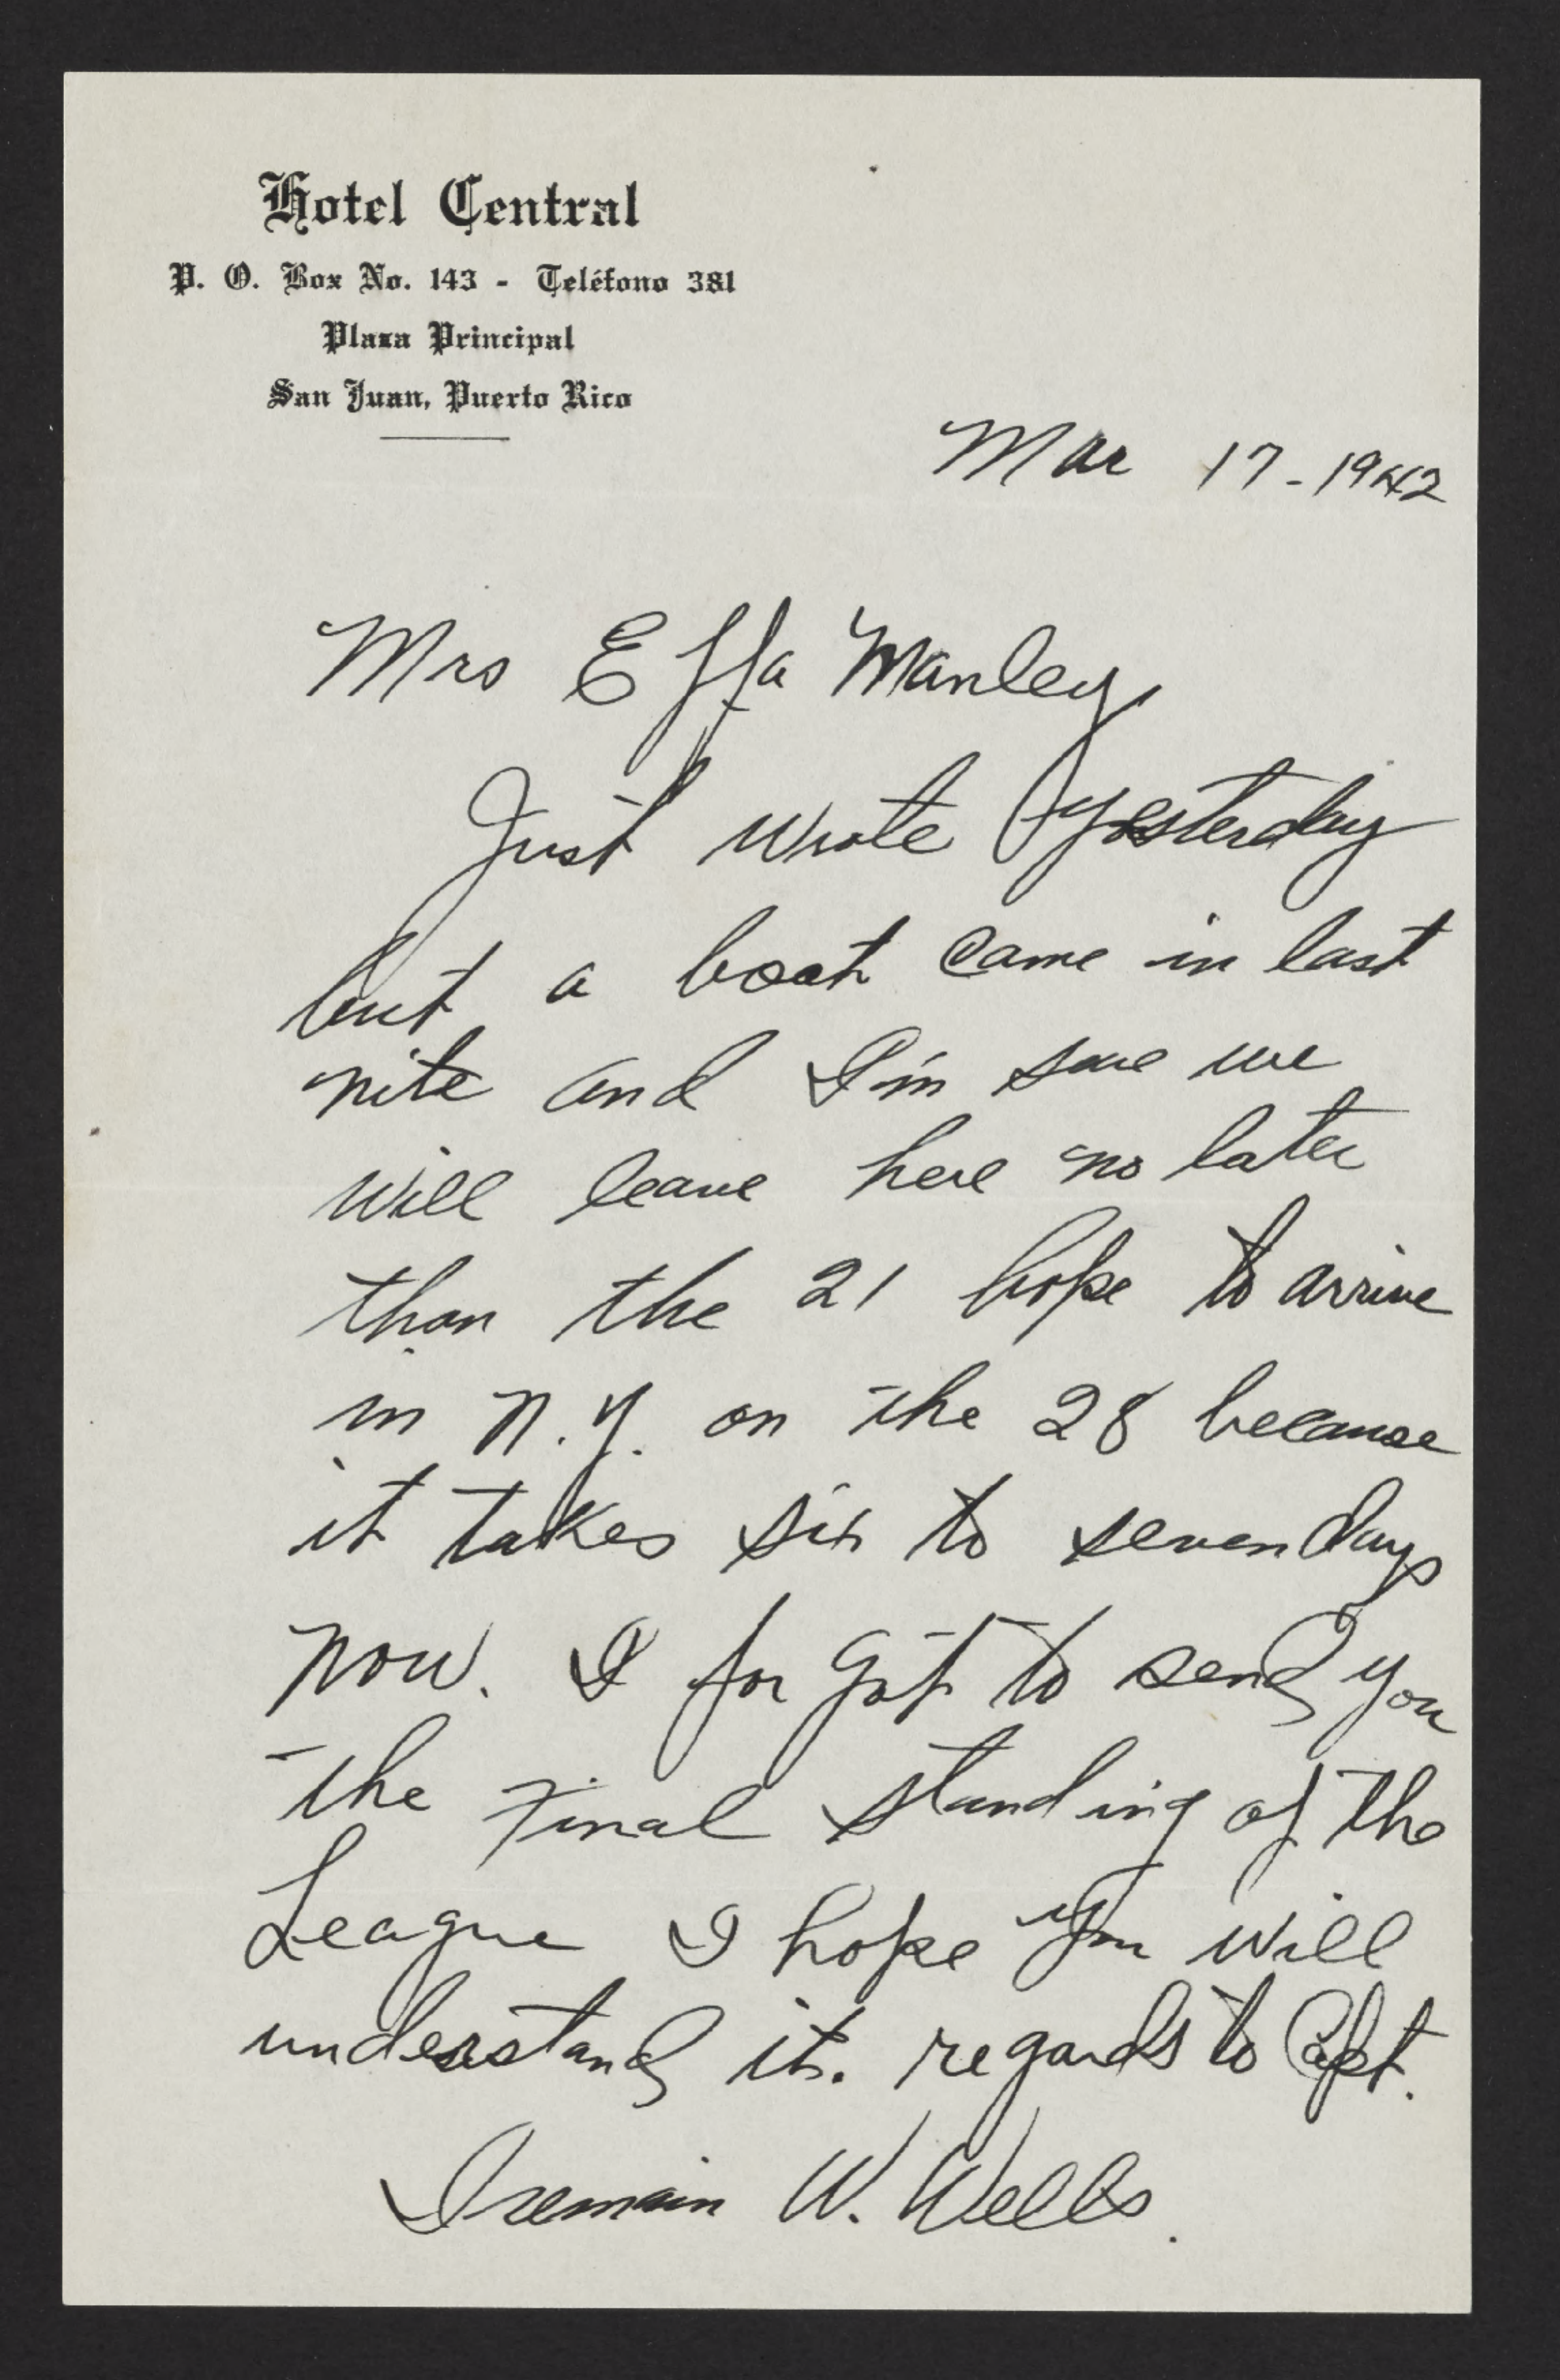 Hotel Central
P. O. Box No. 143 - Teléfono 381
Plaza Principal
San Juan, Puerto Rico
Mar 17-1942
Mrs Effa Manley,
Just wrote yesterday
but a boat came in last
nite and I'm sure we
will leave here no later
than the 21 hope to arrive
in N.Y. on the 28 because
it takes six to seven days
now. I for got to send you
the Final standing of the
League I hope you will
understand it. regards to Capt.
I remain W. Wells.